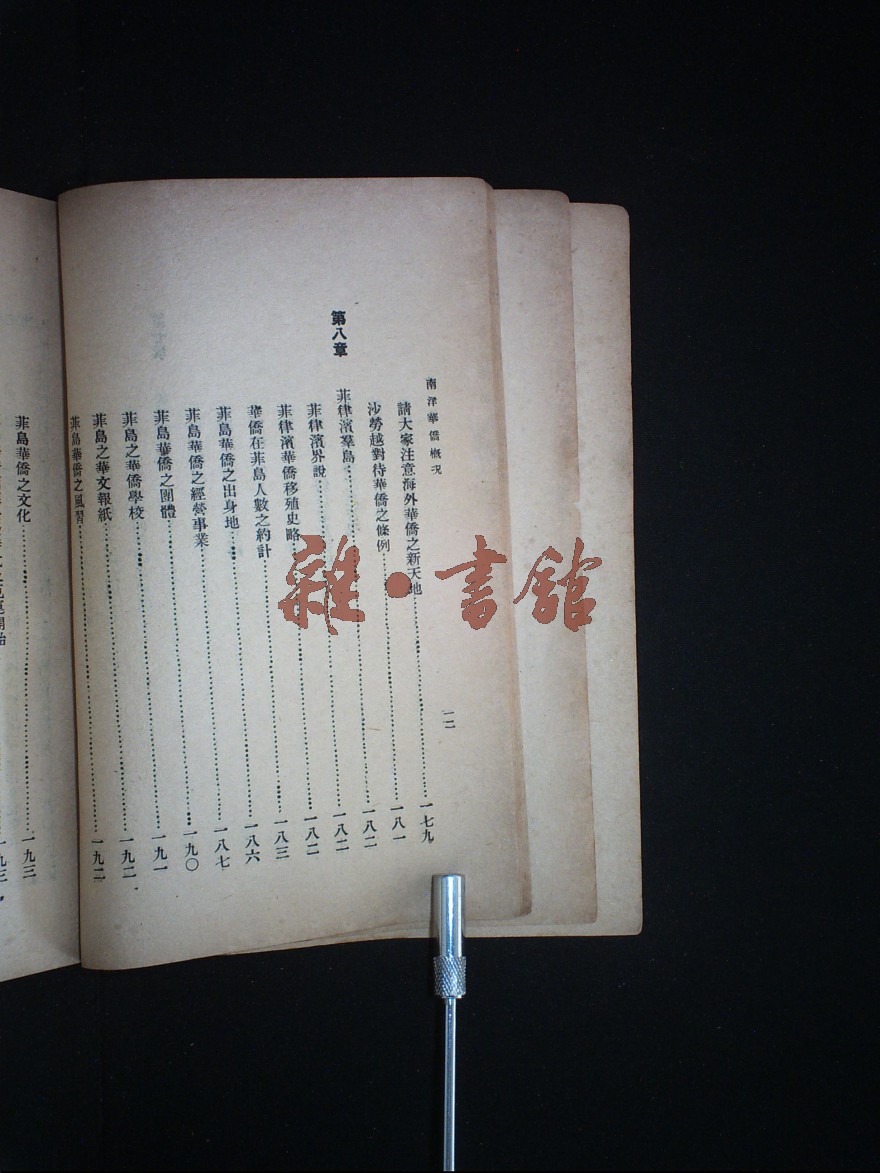 南洋華僑概況
一二
請大家注意海外華僑之新天地……一七九
沙勞越對待華僑之條例……一八一
第八章 菲律濱羣島……一八二
菲律濱界說……一八二
菲律濱華僑移殖史略……一八二
華僑在菲島人數之約計……一八三
菲島華僑之出身地……一八六
菲島華僑之經營事業……一八七
菲島華僑之團體……一九〇
菲島之華僑學校……一九一
菲島之華文報紙……一九二
菲島華僑之風習……一九二
菲島華僑之文化……一九三
雜·書館